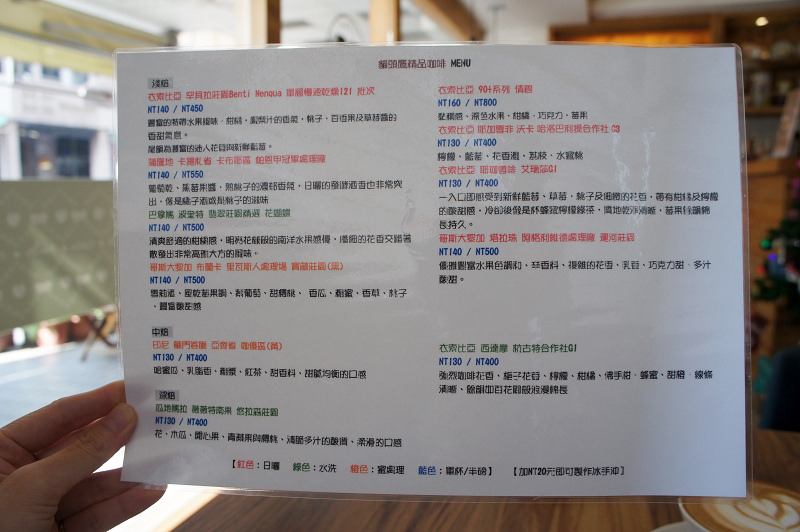 貓頭鷹精品咖啡 MENU
淺焙
衣索比亞 罕貝拉莊園Benti Nenqua 單層慢速乾燥121 批次
NT140 / NT450
豐富的熱帶水果風味、柑橘、鳳梨汁的香氣，桃子、百香果及草精蕾的
香甜氣息。
尾韻為豐富的迷人花苺與新鮮藍莓。
蒲隆地 卡揚札省 卡布耶區 帕恩甲冠軍處理廠
NT140 / NT550
葡萄乾、黑莓果醬、熟桃子的濃郁香氣，日曬的發酵酒香也非常突
出，像是桃子酒或是桃子的滋味
巴拿馬 波奎特 翡翠莊園精選 花蝴蝶
NT140 / NT500
清爽舒適的柑橘感，明亮花綻般的南洋水果感情，優雅的花香交錯著
散發出非常高雅大方的風味。
哥斯大黎加 布蘭卡 東瓦斯人處理場 寶藏莊園(黑)
NT140 / NT500
雪莉酒、風乾莓果調、紫葡萄、甜櫻桃、 香瓜、楓蜜、香草、桃子
、豐富酸甜感
中焙
印尼 蘇門答臘 亞齊省 咖優區(黃)
NT130 / NT400
哈蜜瓜、乳脂香、楓漿、紅茶、甜香料、甜膩均衡的口感
深焙
瓜地馬拉 薇薇特南果 悠拉蟲莊園
NT130 / NT400
花、木瓜、開心果、青蘋果與櫻桃、清脆多汁的酸質、柔滑的口感
衣索比亞 90+系列 情侶
NT160 / NT800
黏稠感、深色水果、柑橘、巧克力、莓果
衣索比亞 耶加雪菲 沃卡 哈洛巴利提合作社 G3
NT130 / NT400
檸檬、藍莓、花香瀰、荔枝、水蜜桃
衣索比亞 耶珈雪啡 艾瑞莎G1
NT130 / NT400
一入口即感受到新鮮藍莓、草莓，桃子及細緻的花香，帶有柑橘及檸檬
的酸甜感，冷卻後像是杯蜂蜜檸檬綠茶，質地乾淨清晰，莓果餘韻綿
長持久。
哥斯大黎加 塔拉珠 阿格利維德處理廠 運河莊園
NT140 / NT500
優雅豐富水果色調和、辛香料、複雜的花香、乳苺、巧克力甜、多汁
酸甜。
衣索比亞 西達摩 莉古特合作社G1
NT130 / NT400
強烈咖啡花香、梔子花苺、檸檬、柑橘、佛手柑、蜂蜜、甜橙、線條
清晰、餘韻如百花園般浪漫綿長
【紅色：日曬 綠色：水洗 橙色：蜜處理 藍色：單杯/半磅】 【加NT20元即可製作冰手沖】